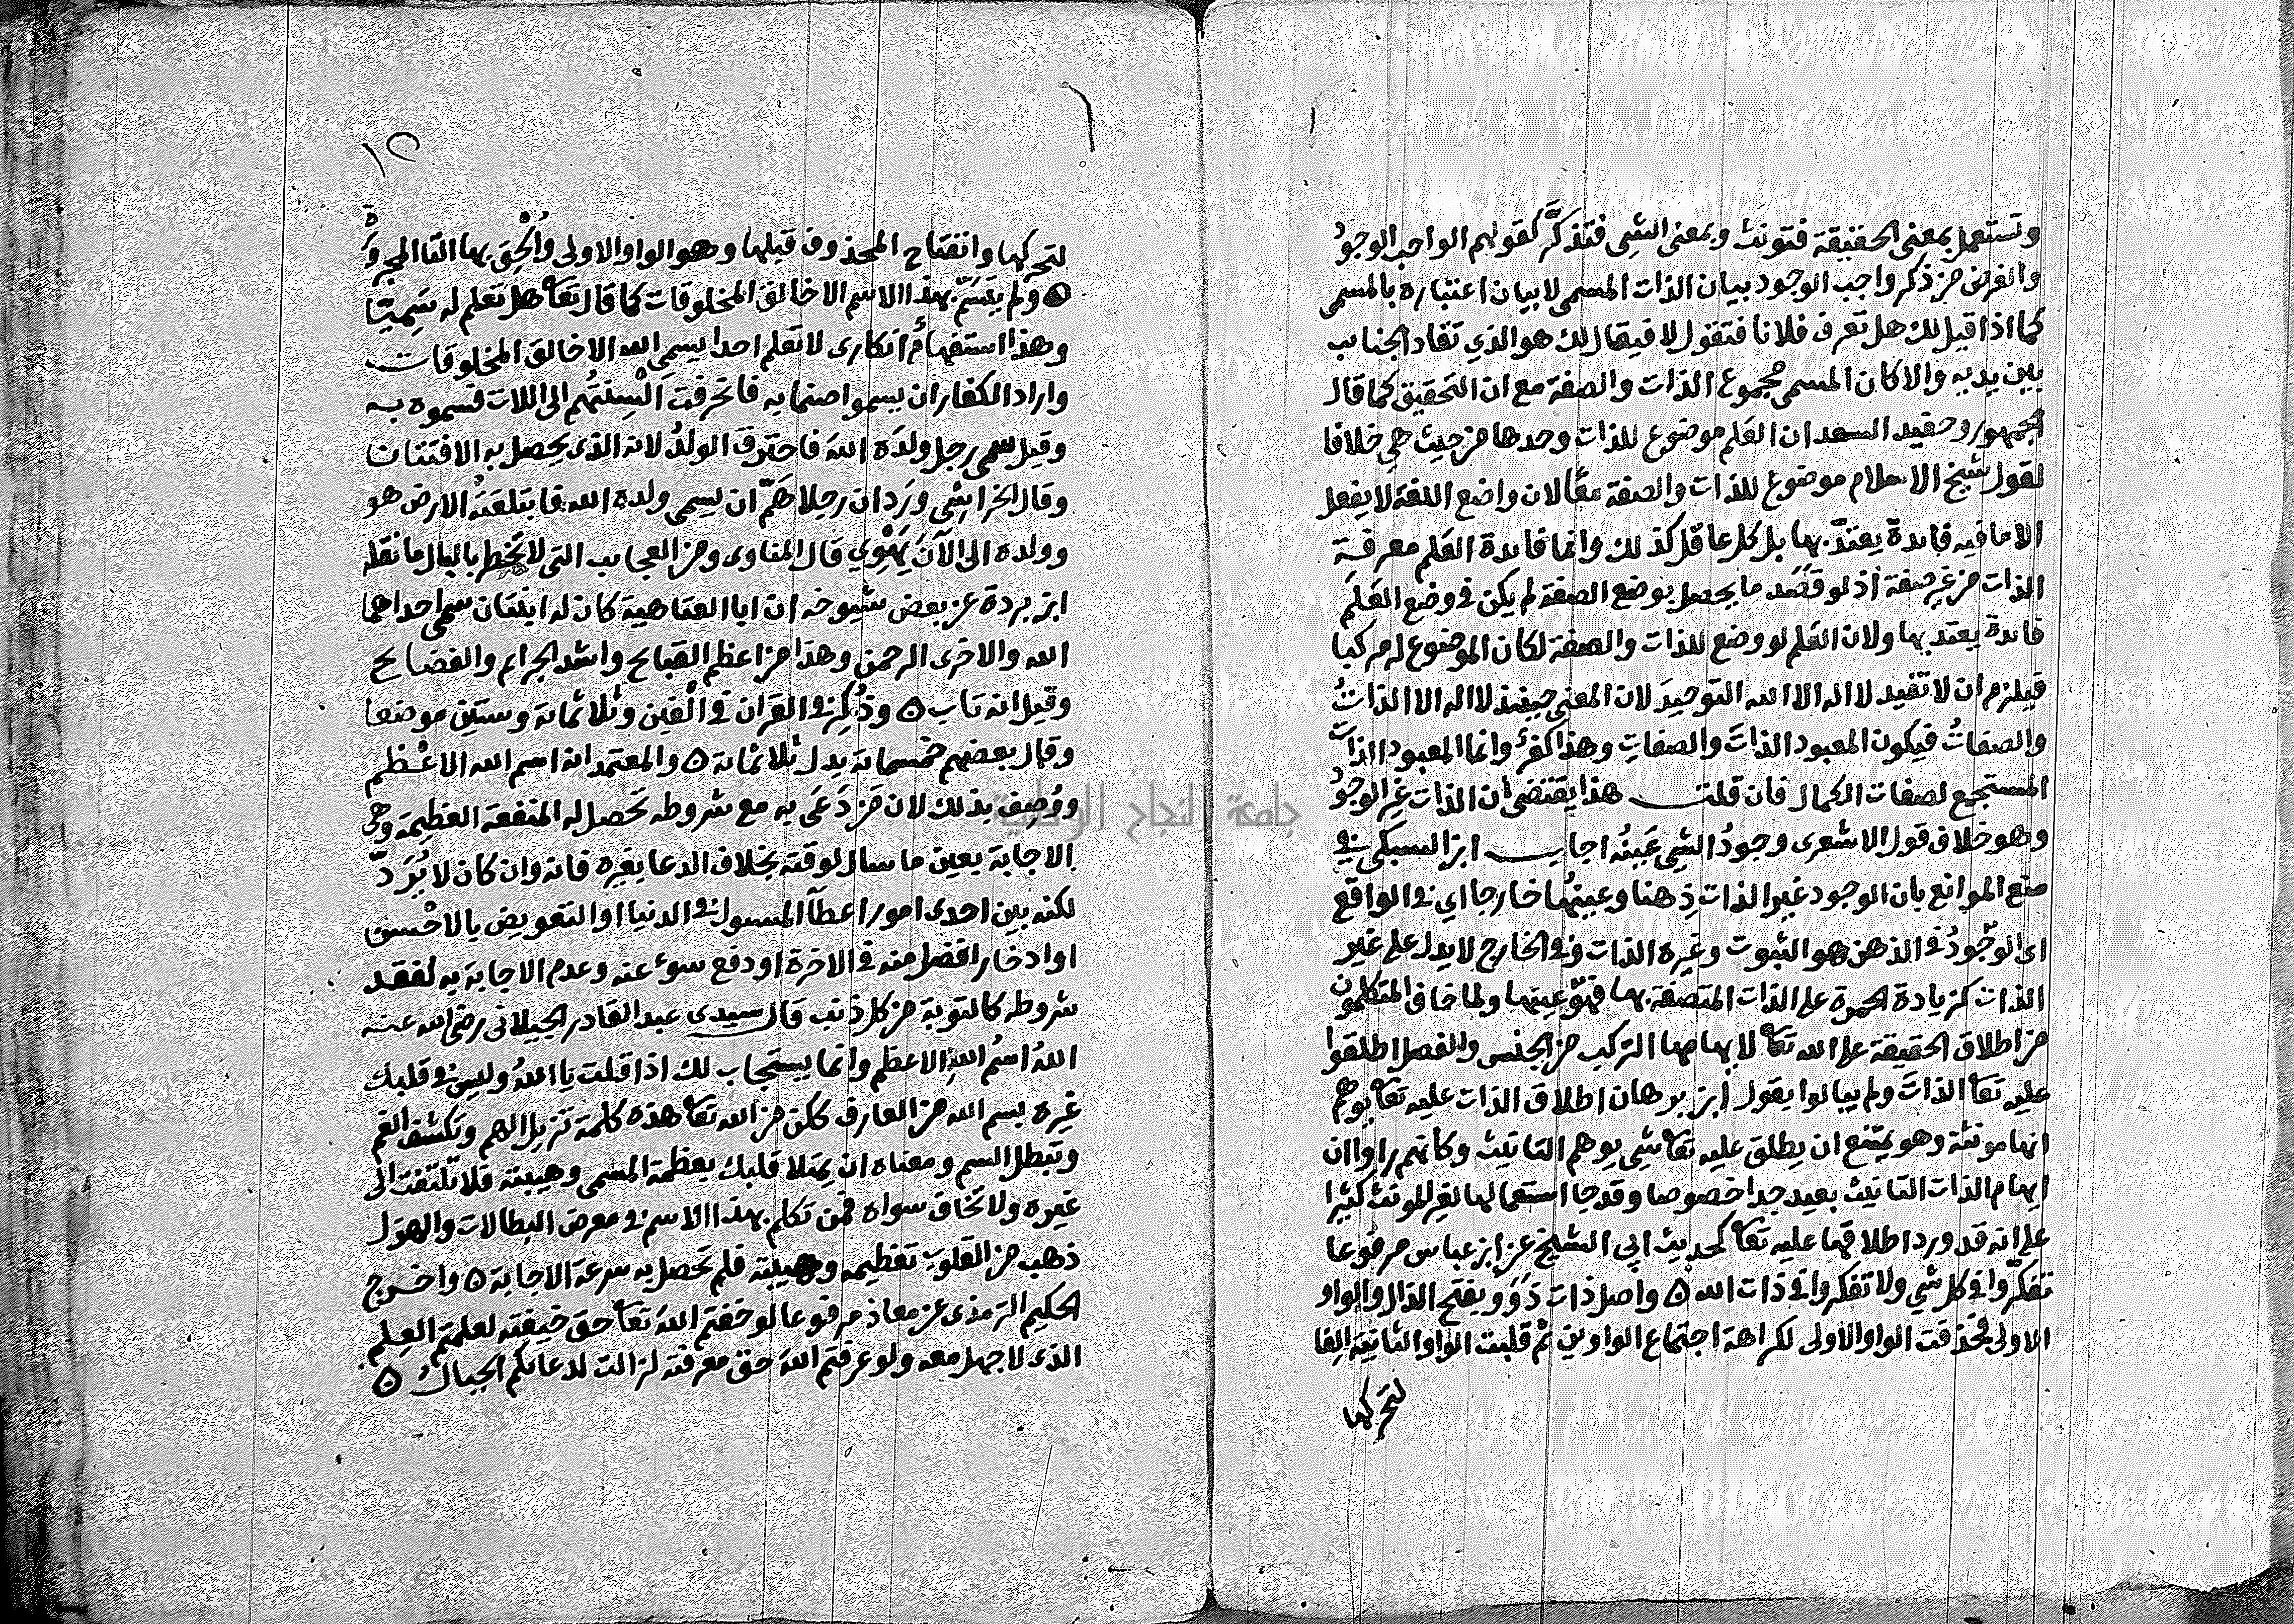 وتستعمل بمعنى الحقيقة فتونث وبمعنى الشي فتذكَّر كقولهم الواجب الوجودُ
والغرض من ذكر واجب الوجود بيان الذات المسمى لا بيان اعتباره بالمسمى
كما اذا قيل لك هل تعرف فلانا فتقول لا فيقال لك هو الذي تقاد الجنايب
بين يديه والا كان المسمى مجموع الذات والصفة مع ان التحقيق كما قال
الجمهور وحفيد السعد ان العَلم موضوع للذات وحدها من حيث هي خلافا
لقول شيخ الاسلام موضوع للذات والصفة معًا لان واضع اللغة لا يفعل
الا ما فيه فايدة يعتدّ بها بل كل عاقل كذلك وانما فايدة العَلم معرفة
الذات من غير صفة اذ لو قصد ما يحصل بوضع الصفة لم يكن في وضع العَلَم
فايدة يعتد بها ولان العَلم لو وضع للذات والصفة لكان الموضوع له مركبا
فيلزم ان لا تفيد لا اله الا الله التوحيدَ لان المعنى حينئذ لا اله الا الذاتُ
والصفاتُ فيكون المعبود الذاتَ والصفاتِ وهذا كفرٌ وانما المعبود الذاتُ
المستجمع لصفات الكمال فان قلت هذا يقتضى ان الذات غير الوجودُ
وهو خلاف قول الاشعرى وجودُ الشي عَينُه اجاب ابن السبكى في
منع الموانع بان الوجود غير الذات ذِهنا وعينُها خارجا اي في الواقع
اى الوجودُ في الذهن هو الثبوت وغيره الذات وفي الخارج لا يدل على غير
الذات كزيادة الحمرة على الذات المتصفة بها فهوّ عينها ولما خاف المتكلمون
من اطلاق الحقيقة على الله تعا لايهامها التركيب من الجنس والفصل اطلقوا
عليه تعا الذاتَ ولم يبالوا بقول ابن برهان اطلاق الذات عليه تعا يوهم
انها مونثة وهو يمتنع ان يطلق عليه تعا شي يوهم التانيث وكانهم راوا ان
ايهام الذات التانيث بعيد جدا خصوصا وقد جا استعمالها لغير المونث كثيرا
على انه قد ورد اطلاقها عليه تعا كحديث ابي الشيخ عن ابن عباس مرفوعا
تفكّروا في كل شي ولا تفكروا في ذات الله ه واصل ذات ذَوَوَ بفتح الذال والواو
الاولى فحذفت الواو الاولى لكراهة اجتماع الواوين ثم قلبت الواو الثانية الفا
لتحركها
١٢
لتحركها وانفتاح المحذوف قبلها وهو الواو الاولى وأُلحِقَ بها التا المجرورة
ه ولم يتسَمّ بهذا الاسم الا خالق المخلوقات كما قال تعا هل تعلم له سَمِيّا
وهذا استفهامٌ انكارى لا تعلم احدا يسمى الله الا خالق المخلوقات
واراد الكفار ان يسموا صنما به فانحرفت اَلْسِنَتُهم الى اللات فسموه به
وقيل سمى رجل ولدَه الله فاحترق الولدُ لانه الذى يحصل به الافتتان
وقال الخراشى ورَد ان رجلا هَمّ ان يسمى ولده الله فابتلعَتْه الارض هو
وولده الى الآنَ يَهْوِي قال المناوى ومن العجايب التى لا تخطر بالبال ما نقله
ابن بردة عن بعض شيوخه ان ابا العتاهية كان له ابنتان سمى احداهما
الله والاخرى الرحمن وهذا من اعظم القبايح واشد الجرايم والفضايح
وقيل انه تاب ه وذُكِر في القران في الفين وثلاثماية وستين موضعا
وقال بعضهم خمسماية بدل ثلاثماية ه والمعتمد انه اسم الله الاعظم
ووُصِف بذلك لان مَن دَعَى به مع شروطه تحصل له المنفعة العظيمة وهى
الاجابة بعين ما سال لوقته بخلاف الدعا بغيره فانه وان كان لا يُرَدّ
لكنه بين احدى امور اعطآ المسول في الدنيا او التعويض بالاحْسن
او ادخار افضل منه في الاخرة او دفع سوء عنه وعدم الاجابة به لفقد
شروطه كالتوبة من كل ذنب قال سيدى عبد القادر الجيلانى رضى الله عنه
اللهُ اسمُ اللهِ الاعظم وانما يستجاب لك اذا قلت يا اللهُ وليس في قلبك
غيره بسم الله من العارف ككن من الله تعا هذه كلمة تزيل الهم وتكشف الغم
وتبطل السم ومعناه ان يمتلا قلبك بعظمة المسمى وهيبته فلا تلتفت الى
غيره ولا تخاف سواه فمن تكلم بهذا الاسم في معرض البطالات والهول
ذهب من القلوب تعظيمه وهيبته فلم تحصل به سرعة الاجابة ه واخرج
الحكيم الترمذى عن معاذ مرفوعا لو خفتم الله تعا حق خيفته لعلمتم العِلم
الذى لا جهل معه ولو عرفتم الله حق معرفته لزالت لدعايكم الجبال ه
جامعة النجاح الوطنية